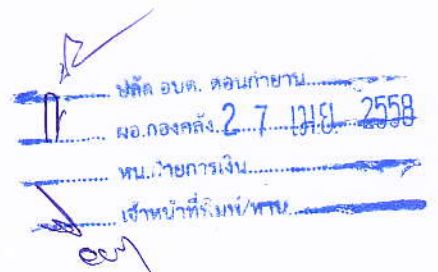 ปลัด อบต. ดอนกำยาน
ผอ.กองคลัง 27 เม.ย. 2558
หน.ฝ่ายการเงิน
เจ้าหน้าที่พิมพ์/ทาน